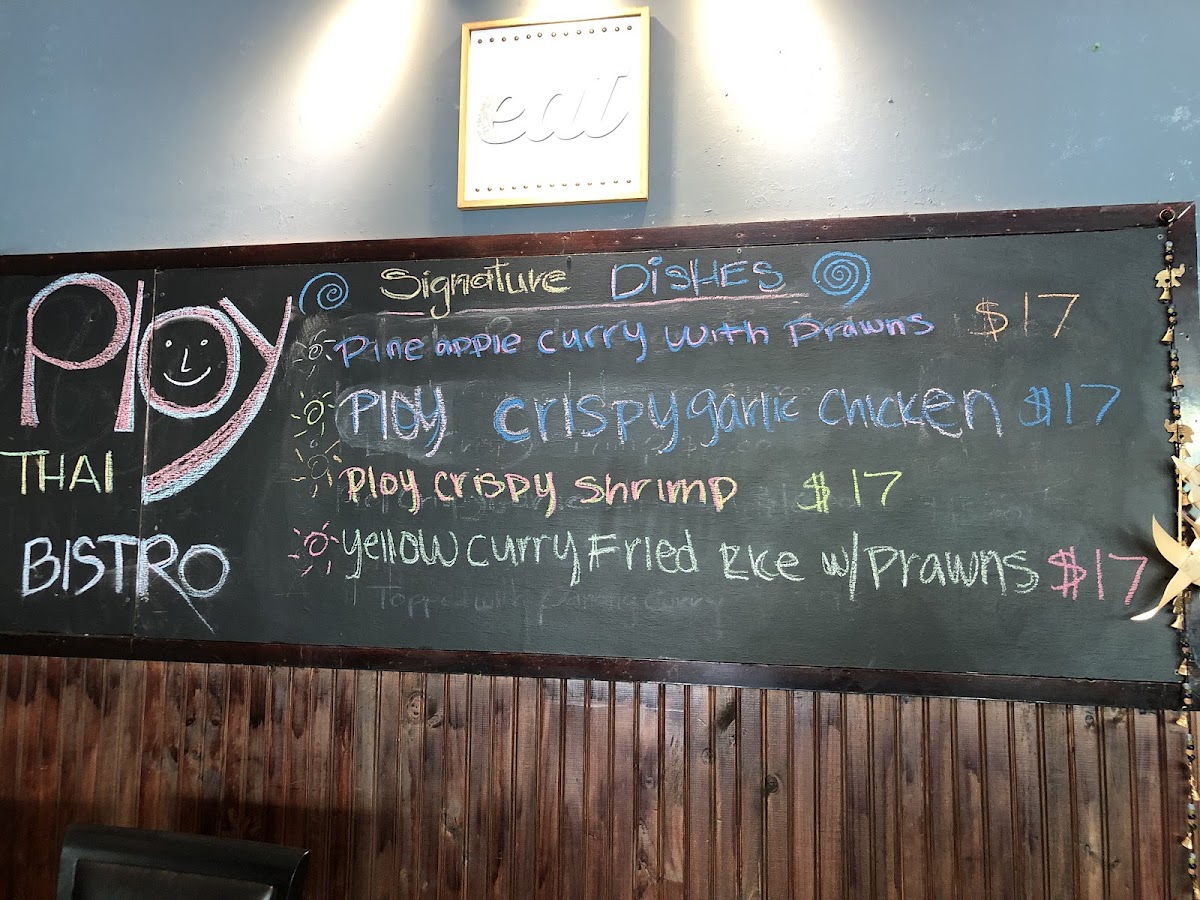 eat
Ploy
THAI
BISTRO
Signature DISHES
Pineapple curry with prawns $17
Ploy crispy garlic chicken $17
Ploy crispy shrimp $17
yellow curry Fried Rice w/ Prawns $17
Topped with